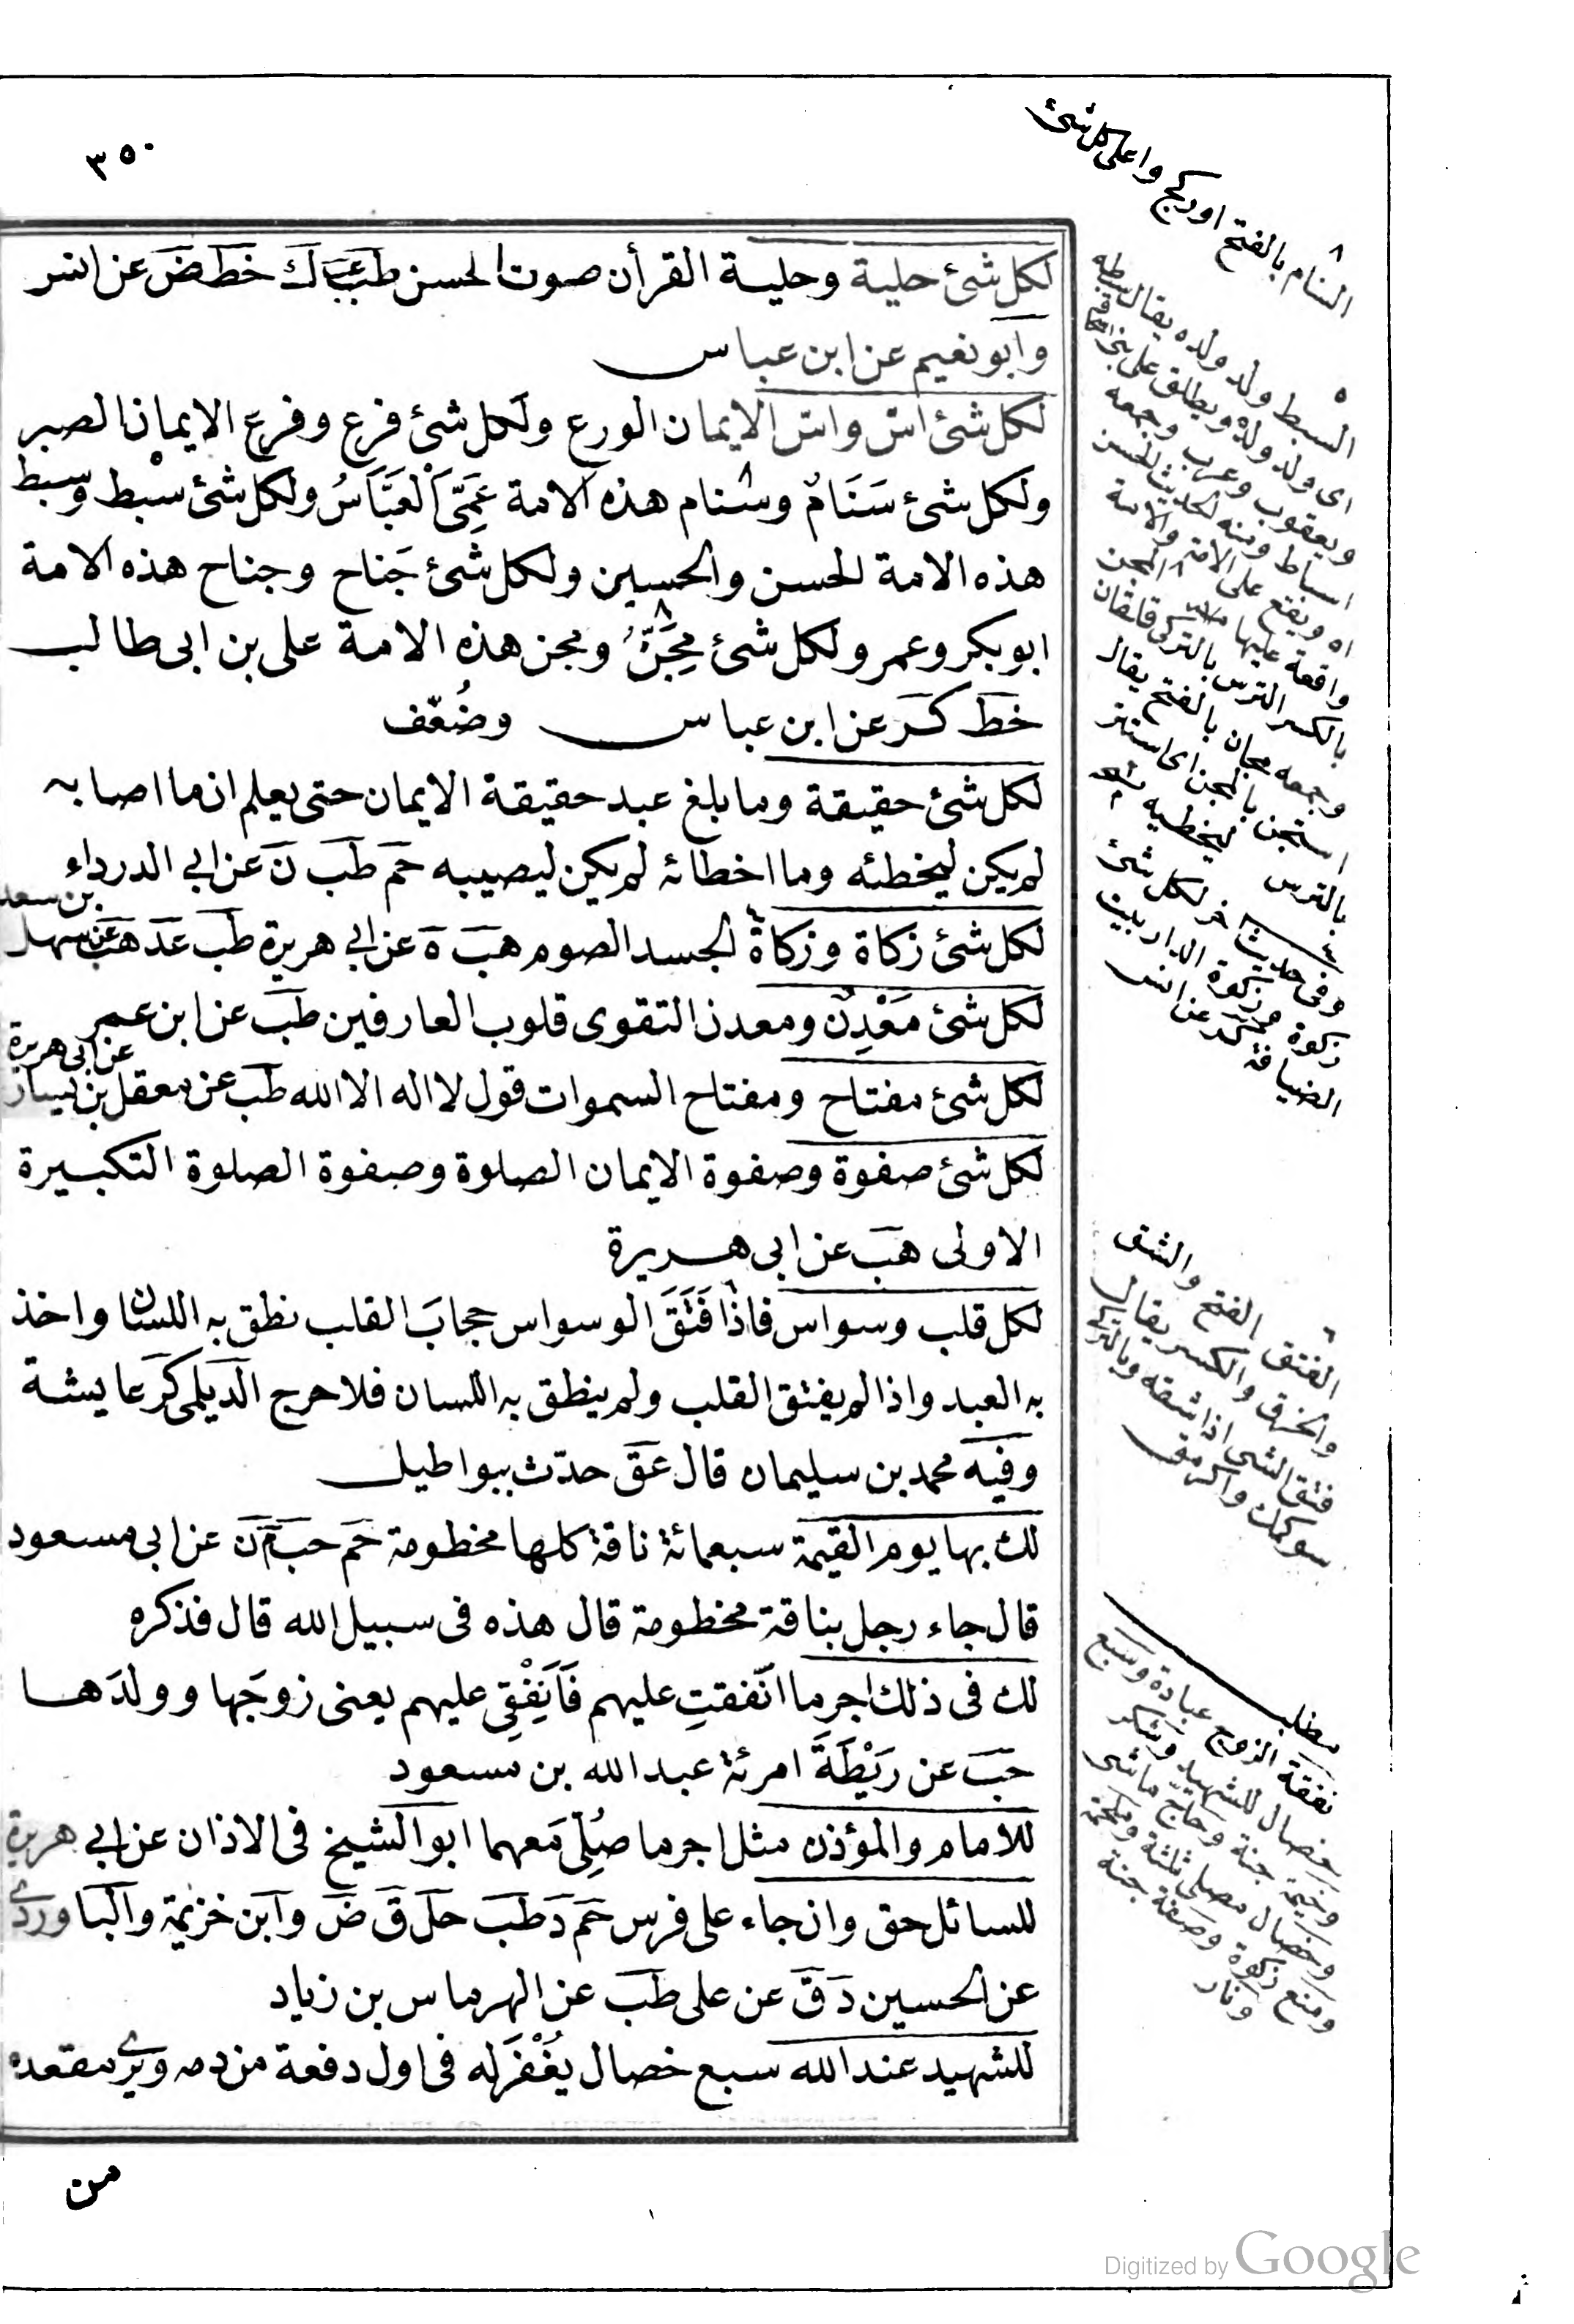 ٣٥٠
لكل شئ حلية وحلية القرأن صوت الحسن طب عب ك خط ض عن انس
وابو نعيم عن ابن عباس
لكل شئ اسّ واسّ الايمان الورع ولكل شئ فرع وفرع الايمان الصبر
ولكل شئ سَنَامٌ وسنام هذه الامة عَمِّىَ الْعَبَّاسُ ولكل شئ سبط وسبط
هذه الامة الحسن والحسين ولكل شئ جَناح وجناح هذه الامة
ابو بكر وعمر ولكل شئ مِجَنٌّ ومجن هذه الامة على بن ابى طالب
خط كر عن ابن عباس وضُعّف
لكل شئ حقيقة وما بلغ عبد حقيقة الايمان حتى يعلم ان ما اصابه
لم يكن ليخطئه وما اخطائه لم يكن ليصيبه حم طب ن عن ابي الدرداء
لكل شئ زكاة وزكاة الجسد الصوم هب ه عن ابي هريرة طب عد هب عن سهل بن سعد
لكل شئ مَعْدِنٌ ومعدن التقوى قلوب العارفين طب عن ابن عمر
لكل شئ مفتاح ومفتاح السموات قول لا اله الا الله طب عن معقل بن يسار عن ابى هريرة
لكل شئ صفوة وصفوة الايمان الصلوة وصفوة الصلوة التكبيرة
الاولى هب عن ابى هريرة
لكل قلب وسواس فاذا فَتَقَ الوسواس حجابَ القلب نطق به اللسان واخذ
به العبد واذا لم يفتق القلب ولم ينطق به اللسان فلا حرج الديلمى كر عايشة
وفيه محمد بن سليمان قال عق حدّث ببواطيل
لك بها يوم القيمة سبعمائة ناقة كلها مخطومة حم حب م ن عن ابى مسعود
قال جاء رجل بناقة مخطومة قال هذه فى سبيل الله قال فذكره
لك فى ذلك اجر ما انّفقتِ عليهم فَاَنْفِقِى عليهم يعنى زوجَها وولدَها
حب عن رَيْطَةَ امرئة عبد الله بن مسعود
للامام والمؤذن مثل اجر ما صُلِّىَ معهما ابو الشيخ فى الاذان عن ابي هريرة
للسائل حق وان جاء على فرس حم د طب حل ق ض وابن خزيمة والباوردى
عن الحسين د ق عن على طب عن الهرماس بن زياد
للشهيد عند الله سبع خصال يُغْفَر له فى اول دفعة من دمه ويرى مقعده
من
السنام بالفتح اوركج واعلى كل شئ
السبط ولد ولده يقال سبطه
اى ولد ولده ويطلق على بنى اسحاق
ويعقوب وعرب وجمعه
اسباط ومنه الحديث الحسن
اه ويقع على الامة والامة
واقعة عليها المجن
بالكسر الترس بالتركى قلقان
وجمعه مجان بالفتح يقال
استجن بالمجن اى استتر
بالترس
وفى حديث اخر لكل شئ
زكوة وزكوة الدار بيت
الضيافة عن انس
الفتق الفتح والشق
والخرق والكسر يقال
فتق الشى اذا شقه وبالتركى
سوكمك
مطلب
نفقة الزوج عبادة وسبع
خصال للشهيد
Digitized by Google